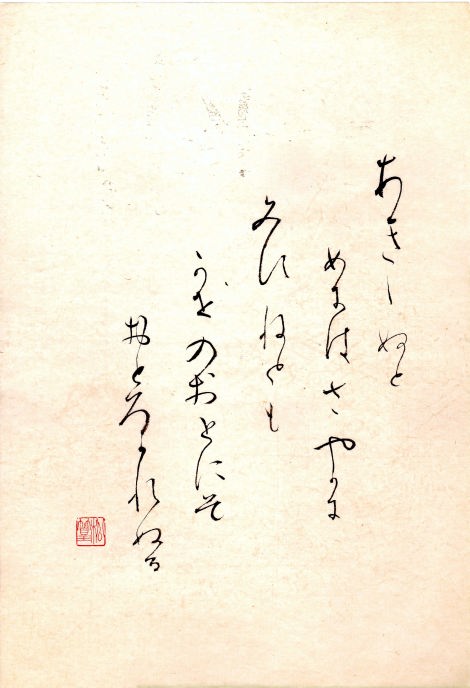 あきしぬと
めにはさやに
みえねとも
かせのおとにそ
おとろかれぬる